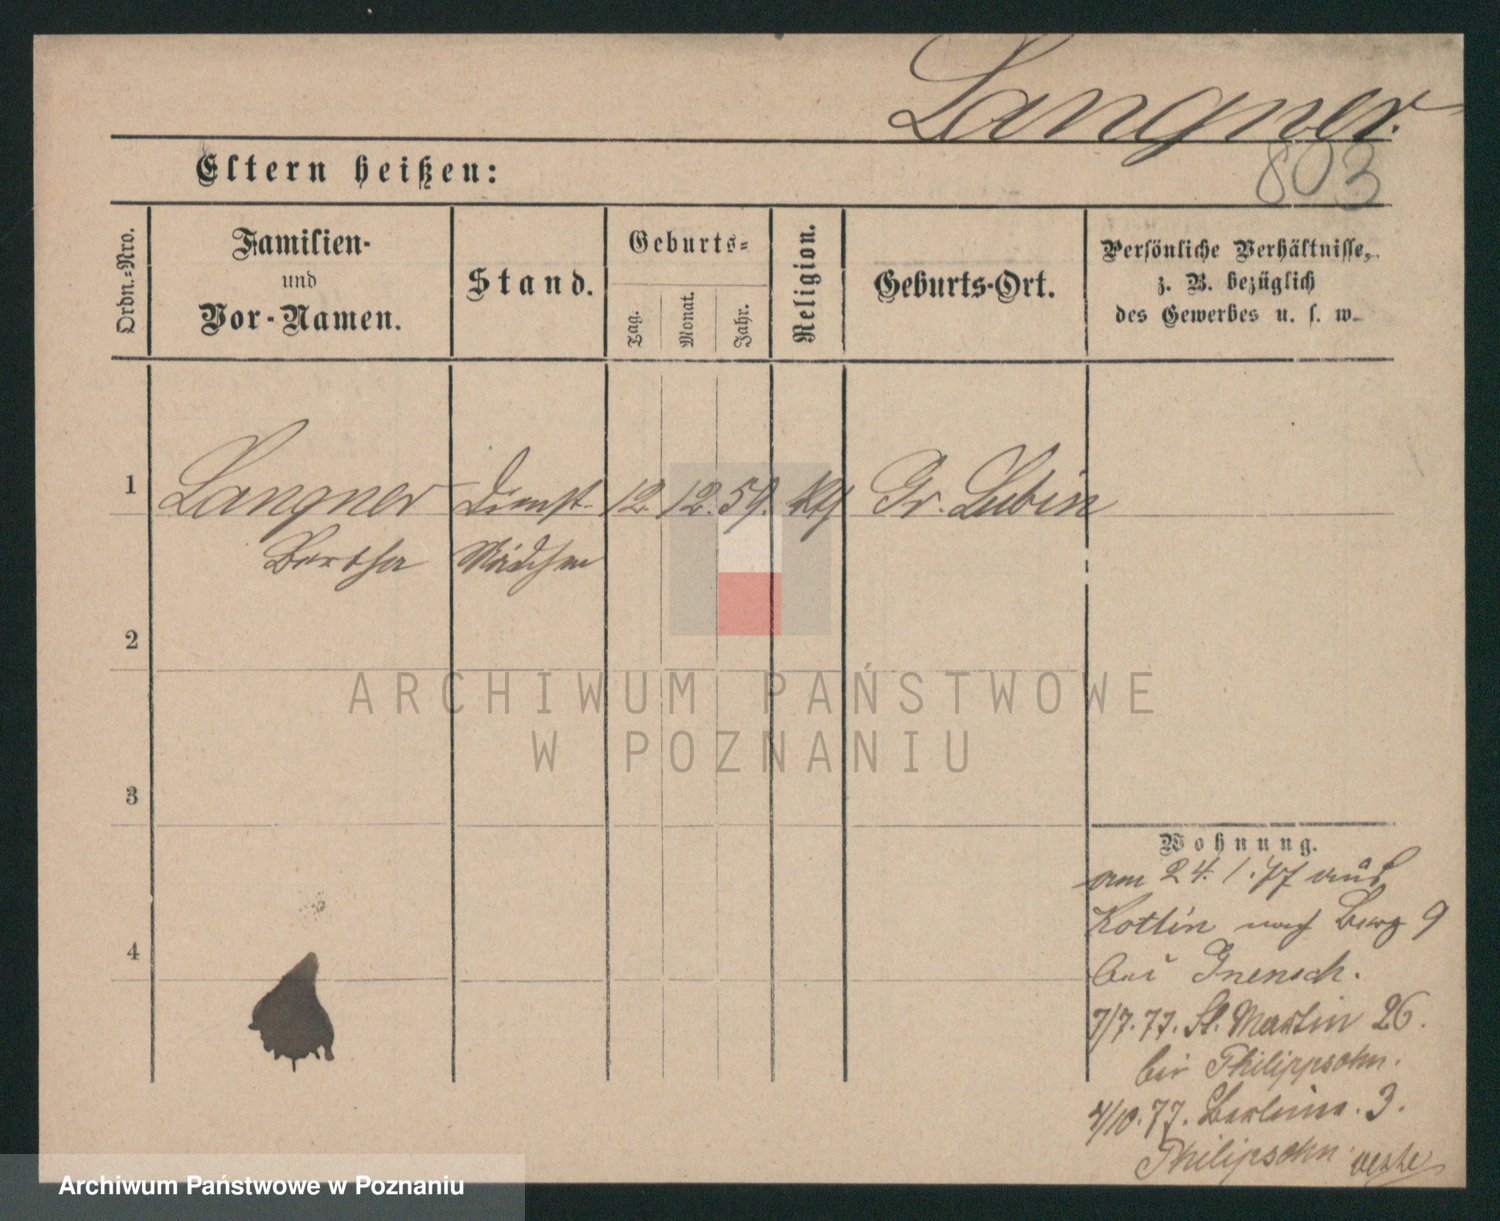 Langner.
803
Eltern heißen:
Ordn.-Nro.
Familien-
und
Vor-Namen.
Stand.
Geburts-
Tag.
Monat.
Jahr.
Religion.
Geburts-Ort.
Persönliche Verhältnisse,
z. B. bezüglich
des Gewerbes u. s. w.
1
Langner Dienst- 12. 12. 59. kth Gr. Lubin
Bertha Mädchen
2
ARCHIWUM PAŃSTWOWE
W POZNANIU
3
Wohnung.
am 24. 1. 77 aus
Kottin nach Berg 9
bei Gnensch.
7/7. 77. St. Martin 26.
bei Philippsohn.
4/10. 77. Berliner. 3.
Philipsohn
4
Archiwum Państwowe w Poznaniu